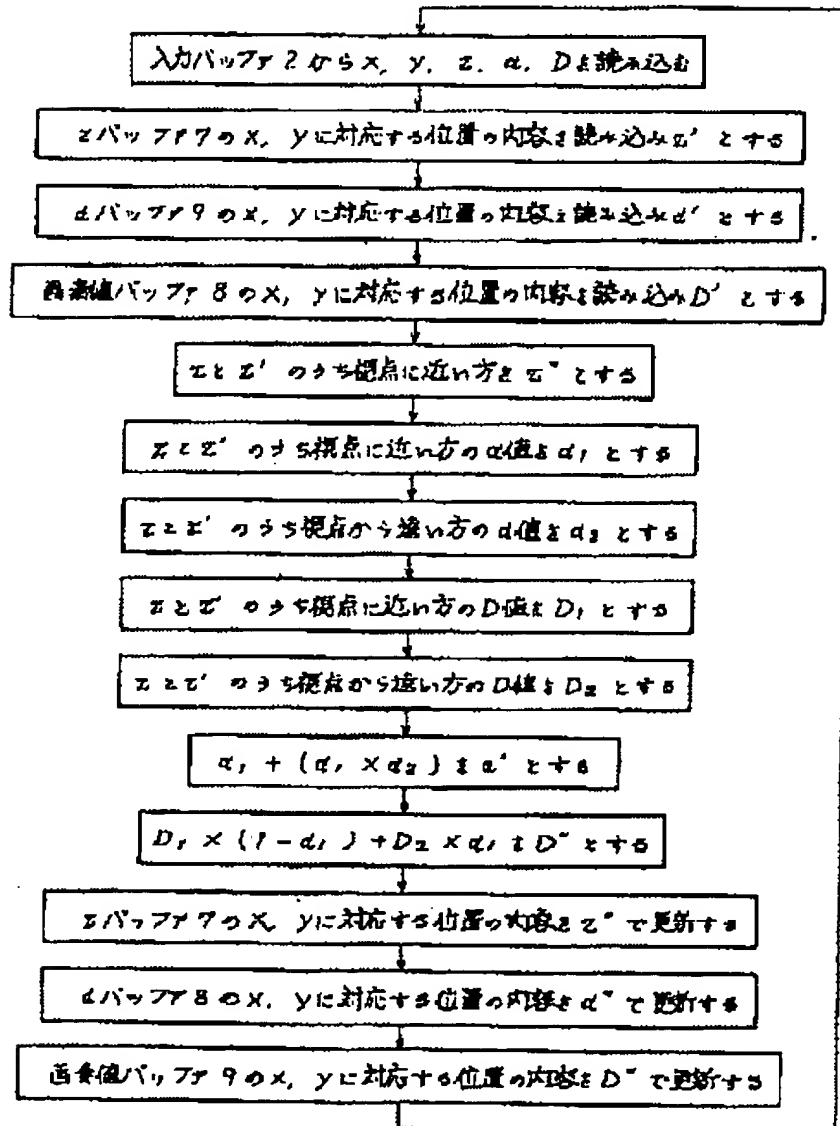 入力バッファ2からx, y, z, α, Dを読み込む
zバッファ7のx, yに対応する位置の内容を読み込みz'とする
αバッファ9のx, yに対応する位置の内容を読み込みα'とする
画素値バッファ8のx, yに対応する位置の内容を読み込みD'とする
zとz'のうち視点に近い方をz"とする
zとz'のうち視点に近い方のα値をα₁とする
zとz'のうち視点から遠い方のα値をα₂とする
zとz'のうち視点に近い方のD値をD₁とする
zとz'のうち視点から遠い方のD値をD₂とする
α₁ + (α₁ × α₂) をα"とする
D₁ × (1 - α₁) + D₂ × α₁ をD"とする
zバッファ7のx, yに対応する位置の内容をz"で更新する
αバッファ8のx, yに対応する位置の内容をα"で更新する
画素値バッファ9のx, yに対応する位置の内容をD"で更新する